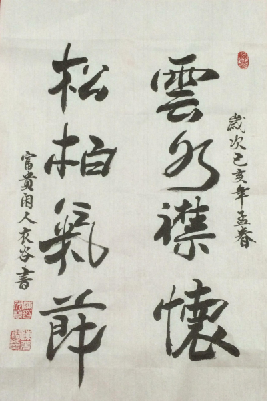 歲次己亥年孟春
雲水襟懷
松柏氣節
富貴閑人袁谷書